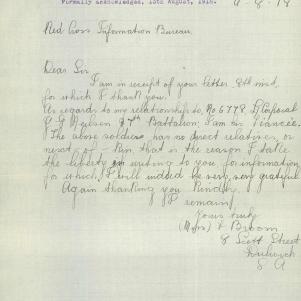 Formally acknowledged, 13th August, 1918.
9-8-18
Red Cross Information Bureau.
Dear Sir
I am in receipt of your letter 8th inst,
for which I thank you.
As regards to my relationship to No 6778 L Corporal
P G Neilson 27th Battalion, I am his fiancée.
The above soldier has no direct relatives, or
next of - Kin, that is the reason I take
the liberty in writing to you for information
for which, I will indeed be very, very grateful
Again thanking you Kindly.
I remain
Yours truly
(Miss) Broom
8 Scott Street
Dulwich
S A